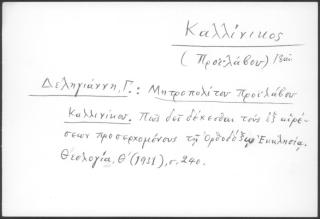 Καλλίνικος
(Προϊλάβου)
Δεληγιάννη, Γ.: Μητροπολίτου Προϊλάβου
Καλλινίκου. Πῶς δεῖ δέχεσθαι τοὺς ἐξ αἱρέ-
σεων προσερχομένους τῇ Ὀρθοδόξῳ Ἐκκλησίᾳ.
Θεολογία, Θ' (1931), σ. 240.